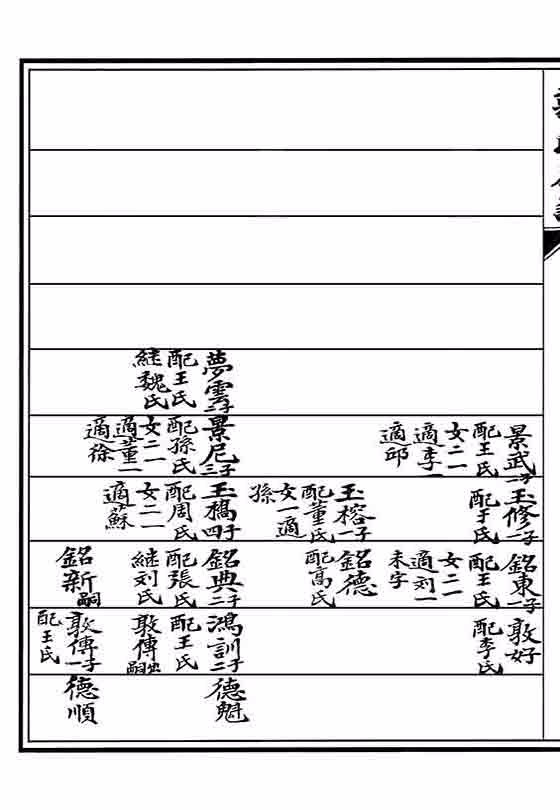 夢雲二子
配王氏
継魏氏
景武一子
配王氏
女二一
適李一
適邱
景尼三子
配孫氏
女二一
適董一
適徐
玉修一子
配于氏
玉榕一子
配董氏
女一適
孫
玉橋四子
配周氏
女二一
適蘇
銘東一子
配王氏
女二一
適刘一
未字
銘德
配高氏
銘典二子
配張氏
継刘氏
銘新嗣
敦好
配李氏
鴻訓二子
配王氏
敦傳出嗣
敦傳一子
配王氏
德魁
德順